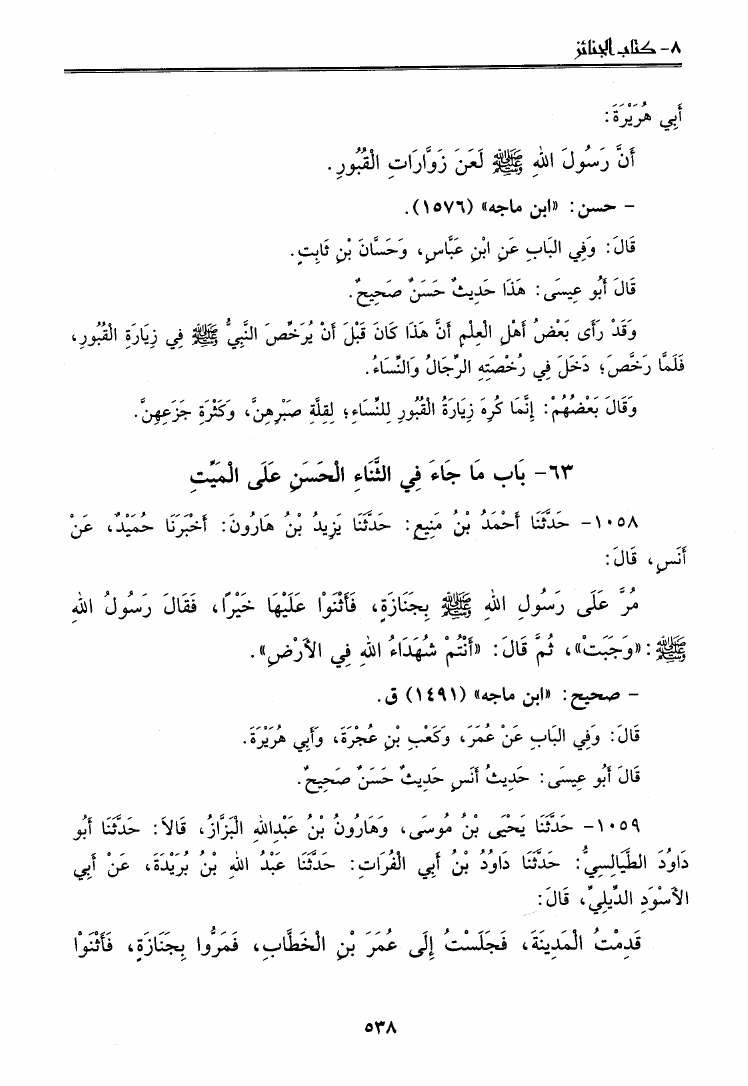 ٨- كتاب الجنائز
أَبِي هُرَيْرَةَ:
أَنَّ رَسُولَ اللهِ ﷺ لَعَنَ زَوَّارَاتِ الْقُبُورِ.
- حسن: «ابن ماجه» (١٥٧٦).
قَالَ: وَفِي الْبَابِ عَنِ ابْنِ عَبَّاسٍ، وَحَسَّانَ بْنِ ثَابِتٍ.
قَالَ أَبُو عِيسَى: هَذَا حَدِيثٌ حَسَنٌ صَحِيحٌ.
وَقَدْ رَأَى بَعْضُ أَهْلِ الْعِلْمِ أَنَّ هَذَا كَانَ قَبْلَ أَنْ يُرَخِّصَ النَّبِيُّ ﷺ فِي زِيَارَةِ الْقُبُورِ،
فَلَمَّا رَخَّصَ؛ دَخَلَ فِي رُخْصَتِهِ الرِّجَالُ وَالنِّسَاءُ.
وَقَالَ بَعْضُهُمْ: إِنَّمَا كُرِهَ زِيَارَةُ الْقُبُورِ لِلنِّسَاءِ؛ لِقِلَّةِ صَبْرِهِنَّ، وَكَثْرَةِ جَزَعِهِنَّ.
٦٣- بَاب مَا جَاءَ فِي الثَّنَاءِ الْحَسَنِ عَلَى الْمَيِّتِ
١٠٥٨- حَدَّثَنَا أَحْمَدُ بْنُ مَنِيعٍ: حَدَّثَنَا يَزِيدُ بْنُ هَارُونَ: أَخْبَرَنَا حُمَيْدٌ، عَنْ
أَنَسٍ، قَالَ:
مُرَّ عَلَى رَسُولِ اللهِ ﷺ بِجَنَازَةٍ، فَأَثْنَوْا عَلَيْهَا خَيْرًا، فَقَالَ رَسُولُ اللهِ
ﷺ: «وَجَبَتْ»، ثُمَّ قَالَ: «أَنْتُمْ شُهَدَاءُ اللهِ فِي الأَرْضِ».
- صحيح: «ابن ماجه» (١٤٩١) ق.
قَالَ: وَفِي الْبَابِ عَنْ عُمَرَ، وَكَعْبِ بْنِ عُجْرَةَ، وَأَبِي هُرَيْرَةَ.
قَالَ أَبُو عِيسَى: حَدِيثُ أَنَسٍ حَدِيثٌ حَسَنٌ صَحِيحٌ.
١٠٥٩- حَدَّثَنَا يَحْيَى بْنُ مُوسَى، وَهَارُونُ بْنُ عَبْدِاللهِ الْبَزَّازُ، قَالاَ: حَدَّثَنَا أَبُو
دَاوُدَ الطَّيَالِسِيُّ: حَدَّثَنَا دَاوُدُ بْنُ أَبِي الْفُرَاتِ: حَدَّثَنَا عَبْدُ اللهِ بْنُ بُرَيْدَةَ، عَنْ أَبِي
الأَسْوَدِ الدِّيلِيِّ، قَالَ:
قَدِمْتُ الْمَدِينَةَ، فَجَلَسْتُ إِلَى عُمَرَ بْنِ الْخَطَّابِ، فَمَرُّوا بِجَنَازَةٍ، فَأَثْنَوْا
٥٣٨